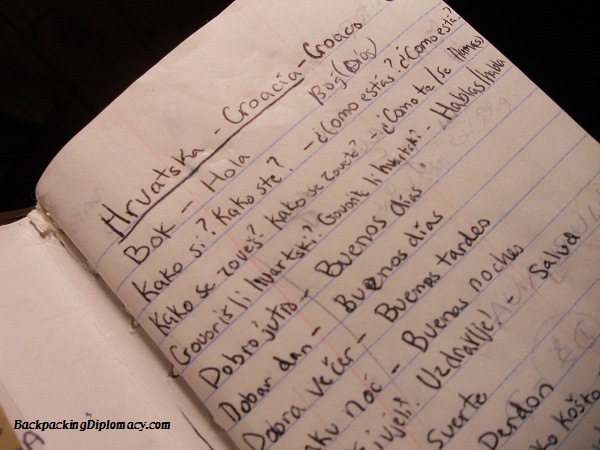 Hrvatska - Croacia - Croaco
Bog (Dios)
Bok - Hola
Kako si? Kako ste? - ¿Como estás? ¿Como está?
Kako se zoveš? Kako se zovete? - ¿Como te/se llamas
Govoriš li hvartski? Govorite li hvartski? - Hablas/Habla
Dobro jutro - Buenos días
Dobar dan - Buenos días
Dobra večer - Buenas tardes
noć - Buenas noches
ivjeli! Uzdravlje! - Salud
Suerte
Perdon
ko košta
BackpackingDiplomacy.com